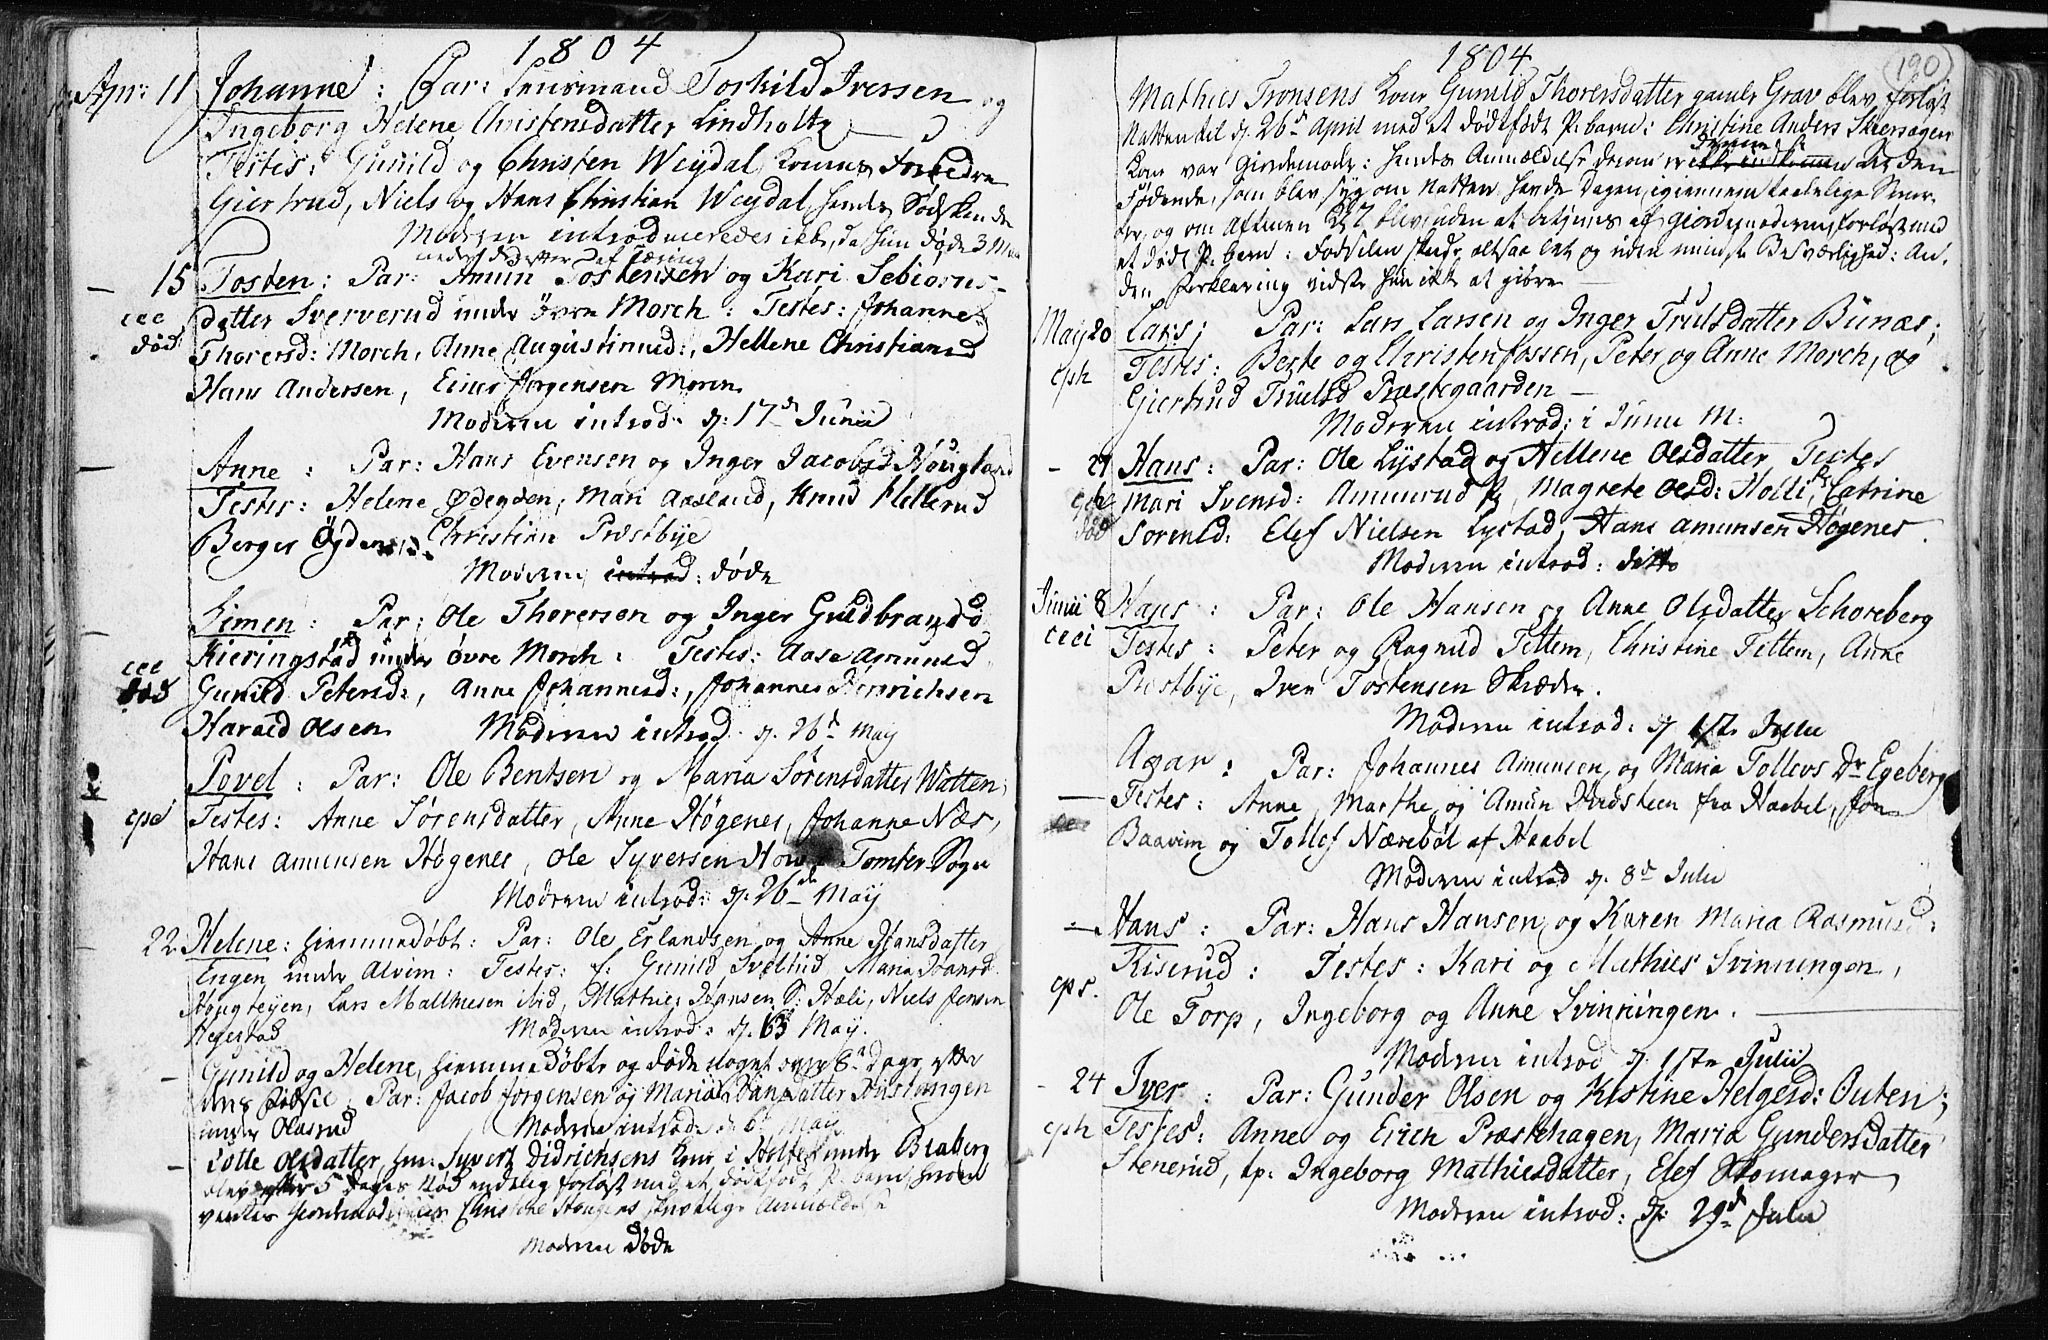 1804
Apr: 11 Johanne: Par: Lensmand Torkild Iversen og
Ingeborg Helene Christensdatter Lindholtz
Testes: Gunild og Christen Weydal,
Giertrud, Niels og Hans Christian Weydal hendes Sødskende
Moderen introduceredes ikke, da hun døde 3 Maa
neder derefter af Tæring
— 15 Tosten: Par: Amun Tostensen og Kari Sebiørns
ccc datter Sververud under Øvre Morch: Testes: Johanne
død Thorersd: Morch, Anne Augustinusd:, Hellene Christiansd
Hans Andersen, Einer Jørgensen Moren
Moderen introd: d. 17de Junii
— Anne: Par: Hans Evensen og Inger Jacobsd Hougland
Testes: Helene Ødegden, Mari Aasland, Knud Hellerud
Berger Øgden, Christian Præstbye
Moderen introd: døde
— Simen: Par: Ole Thorersen og Inger Guldbrandsd
Kieringstad under Øvre Morch: Testes: Aase Amunsd
ccc Gunild Petersd:, Anne Johannesd:, Johannes Henrichsen
død Harald Olsen Moderen introd. d. 26de May
Povel: Par: Ole Bentsen og Maria Sørensdatter Watten,
cpd Testes: Anne Sørensdatter, Anne Høgenes, Johanne Næs,
Hans Amunsen Høgenes, Ole Syversen Tomter Sogn
Moderen introd: d. 26de May
22 Helene: hiemmedøbt: Par: Ole Erlandsen og Anne Hansdatter
Engen under Alvim: Testes: f: Gunild Maria Hansd
Lars Matthiesen ibid, Mathies Hansen S: Hæli, Niels Jensen
Hegstad Moderen introd: d. May.
— Gunild og Helene, hiemmedøbte og døde noget over 8te Dage efter
Par: Jacob Jorgensen og Maria Hansdatter
under Olasrud Moderen introd. d. 6 May
— Lotte Olsdatter, Syvert Didrichsens Kone i Holter under Braberg
blev efter 5 Dages Nød endelig forløst med et dødfødt P: barn,
Anmældelse
Moderen døde
1804 190
Mathies Tronsens Kone Gunild Thorersdatter gamle Grav blev forløst
Natten til d. 26de April med et dødfødt P: barn: Christine Anders Skiersagen
Kone var Giordemoder: hendes Anmældelse derom
Fødende, som blev syg om Natten, havde Dagen igiennem taalelige Smer
ter, og om Aftenen blev, uden at betienes af Giordemoderen, forløst med
et dødt P: barn: Fødselen skeede altsaa let og uden mindste Besværlighed: An
den Forklaring vidste hun ikke at give
May 20 Lars; Par: Lars Larsen og Inger Trulsdatter Bunæs;
cph Testes: Berte og Christen fossen, Peter og Anne Morch, og
Giertrud Truelsd Præstegaarden —
Moderen introd: i Junii M:
— 21 Hans: Par: Ole Lystad og Hellene Olsdatter Testes
Mari Svensd: Amunrud, Magrete Olsd: Holli, Catrine
død Sorensd: Elef Nielsen Lystad, Hans Amunsen Høgenes.
Moderen introd: ditto
Junii 8 Hans: Par: Ole Hansen og Anne Olsdatter Schoreberg
ceci Testes: Peter og Ragnild Tettem, Christine Tettem, Anne
Præstbye, Iver Tostensen Skræder.
Moderen introd: d 1ste Julii
Agar: Par: Johannes Amunsen og Maria Tollevs Dr Egeberg
— Testes: Anne, Marthe og Amun fra Haabel, Jon
Baavim og Tollef Næsebøl af Haabel
Moderen introd d. 8de Julii
— Hans: Par: Hans Hansen og Karen Maria Rasmusd:
Kiserud: Testes: Kari og Mathies Svinningen,
cps. Ole Torp, Ingeborg og Anne Svinningen.
Moderen introd d. 1ste Julii
— 24 Iver: Par: Gunder Olsen og Kistine Helgesd: Outen;
cph Testes: Anne og Erich Præstehagen, Maria Gundersdatter
Stenerud, Ingeborg Mathiesdatter, Elef Skomager
Moderen introd: d: 29de Julii